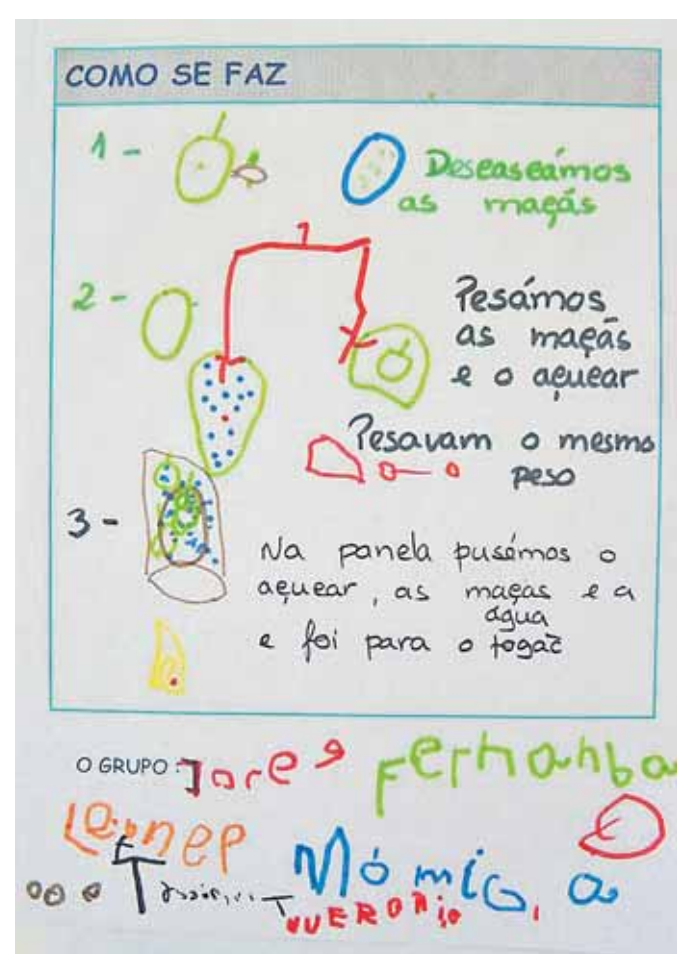 COMO SE FAZ
1 -
Descascámos
as maçãs
2 -
Pesámos
as maçãs
e o açucar
Pesavam o mesmo
peso
3 -
Na panela pusémos o
açucar, as maças e a
água
e foi para o fogão
O GRUPO:
Jorge
Fernanba
Mómica
VUERONIO